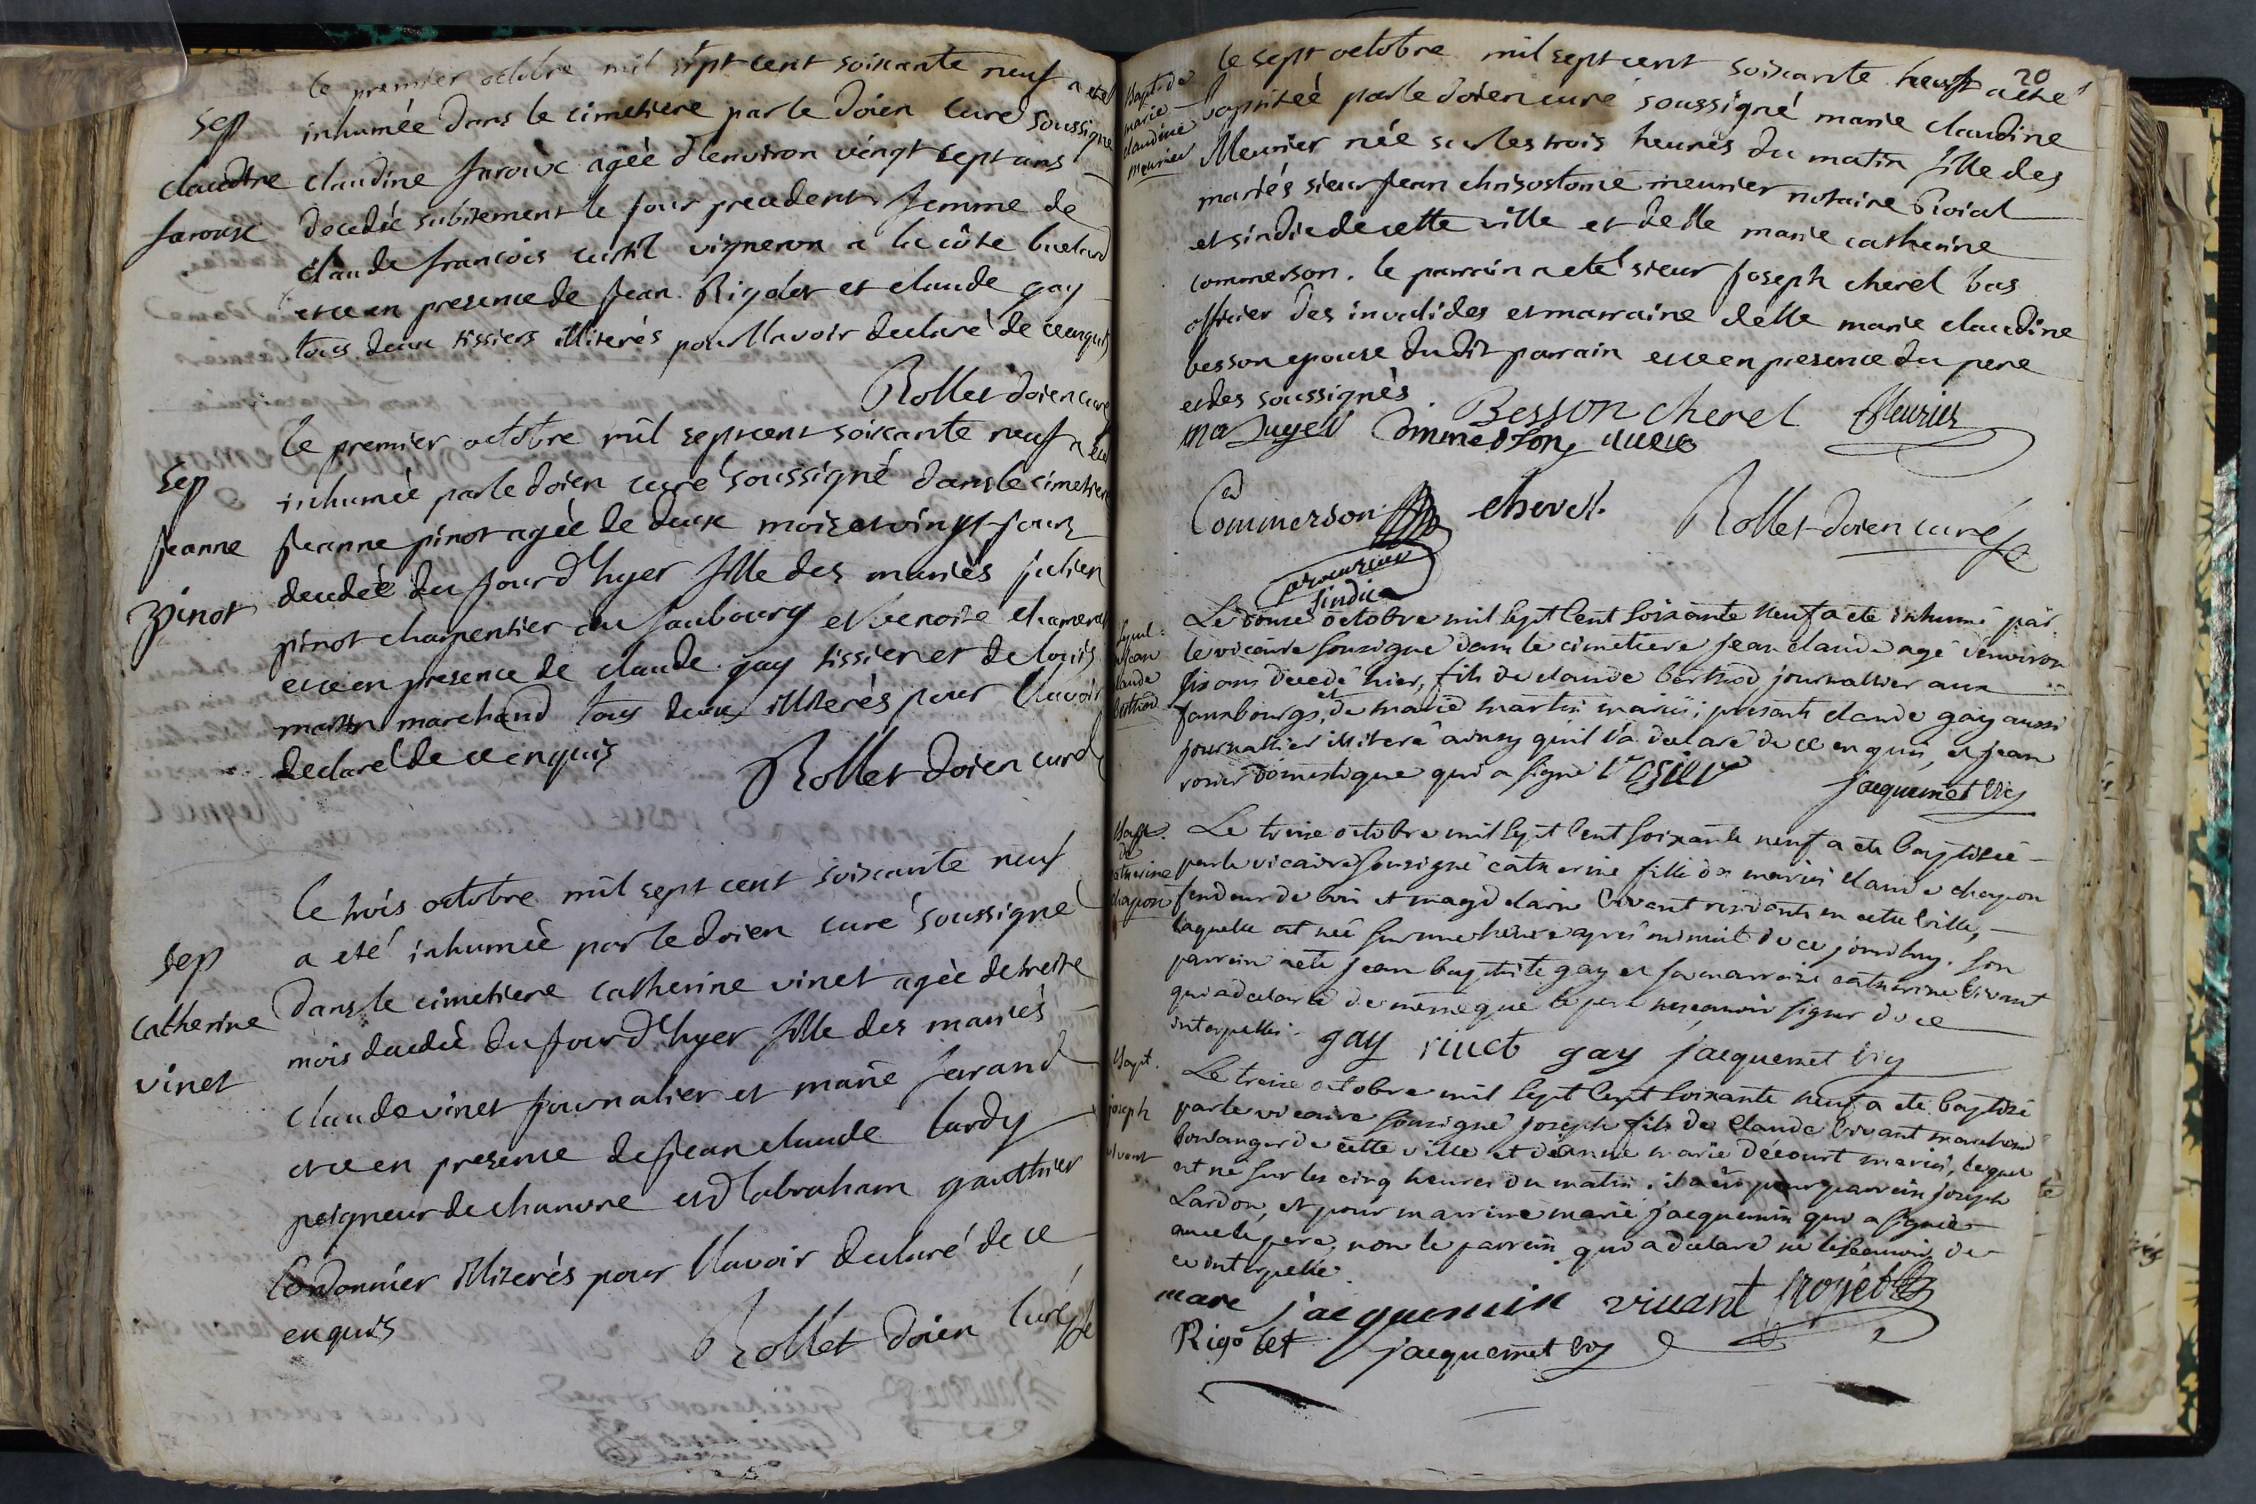 le premier octobre mil sept cent soixante neuf a eté
Sep
inhumée dans le cimetiere par le doien curé soussigné
claudine
claudine Jaroux agée d'environ vingt sept ans
Jaroux
decedée subitement le jour precedent femme de
claude françois curtil vigneron a la côte
et ce en presence de jean Rigolet et claude gay
tous deux tissiers illiterés pour l'avoir declaré de ce enquis
Rollet doien curé
Le premier octobre mil sept cent soixante neuf a eté
Sep
inhumée par le doien curé soussigné dans le cimetiere
jeanne
jeanne pinot agée de deux mois et vingt jours
pinot
decedée du jour d'hyer fille des mariés julien
pinot charpentier au faubourg et benoite
et ce en presence de claude gay tissier et de louis
martin marchand tous deux illiterés pour l'avoir
declaré de ce enquis
Rollet doien curé
Le trois octobre mil sept cent soixante neuf
Sep
a eté inhumée par le doien curé soussigné
catherine
dans le cimetiere catherine vinet agée de treize
vinet
mois decedée du jour d'hyer fille des mariés
claude vinet journalier et marie Jarand
et ce en presence de jean claude lardy
peigneur de chanvre et d'abraham gauthier
Cordonnier illiterés pour l'avoir declaré de ce
enquis
Rollet doien curé
20
Bapt. de
marie
claudine
meunier
le sept octobre mil sept cent soixante neuf a eté
baptisée par le doien curé soussigné marie claudine
Meunier née sur les trois heures du matin fille des
mariés sieur jean chrisostome meunier notaire Roial
et sindic de cette ville et delle marie catherine
commerson. le parrain a eté sieur joseph cherel bas
officier des invalides et marraine delle marie claudine
besson epouse dudit parrain et ce en presence du pere
et des soussignés.
Besson cherel Meunier
Commerson
Commerson cherel. Rollet doien curé
sindic
Sepul.
jean
claude
berthod
Le douze octobre mil sept cent soixante neuf a ete inhumé par
le vicaire sousigné dans le cimetiere jean claude agé d'environ
six ans decedé hier, fils de claude berthod journallier aux
fauxbourgs, et de marie martin mariés; presents claude gay aussi
journallier illiteré ainsy qu'il l'a declaré de ce enquis, et jean
rosier domestique qui a signé rosier jacquemet vic
Bapt.
de
catherine
chapon
Le treize octobre mil sept cent soixante neuf a ete baptisée
par le vicaire sousigné catherine fille de mariés claude chapon
fendeur de bois et magdelaine vivant residants en cette ville,
laquelle est née sur une heure apres minuit de ce jourdhuy. son
parrain a ete jean baptiste gay et sa marraine catherine vivant
qui a declaré de même que le pere ne sçavoir signer de ce
interpellés. gay gay jacquemet vic
Bapt.
joseph
vivant
Le treize octobre mil sept cent soixante neuf a ete baptisé
par le vicaire sousigné joseph fils de claude vivant marchand
boulanger de cette ville et deanne marie décourt mariés, lequel
est né sur les cinq heures du matin. il a eu pour parrain joseph
Lardon, et pour marrine marie jacquemin qui a signé
avec le pere, non le parrein qui a declaré ne le sçavoir de
ce interpellé.
marie jacquemin vivant
Rigolet jacquemet vic